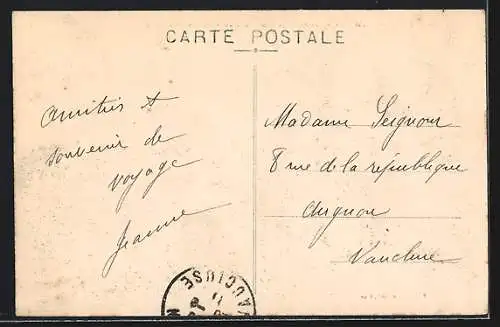 CARTE POSTALE
Amitiés &
souvenir de
voyage
Jeanne
Madame Seignour
8 rue de la république
Avignon
Vaucluse
VAUCLUSE